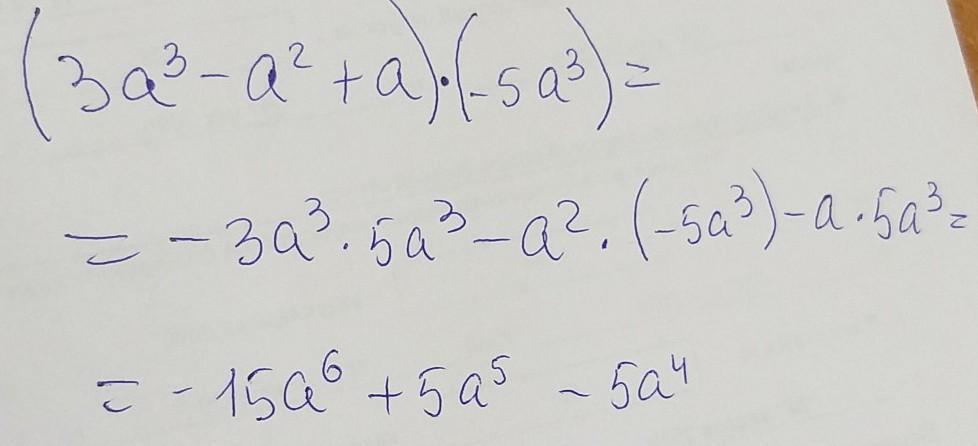 (3a³ - a² + a)·(-5a³) =
= -3a³·5a³ - a²·(-5a³) - a·5a³ =
= -15a⁶ + 5a⁵ - 5a⁴